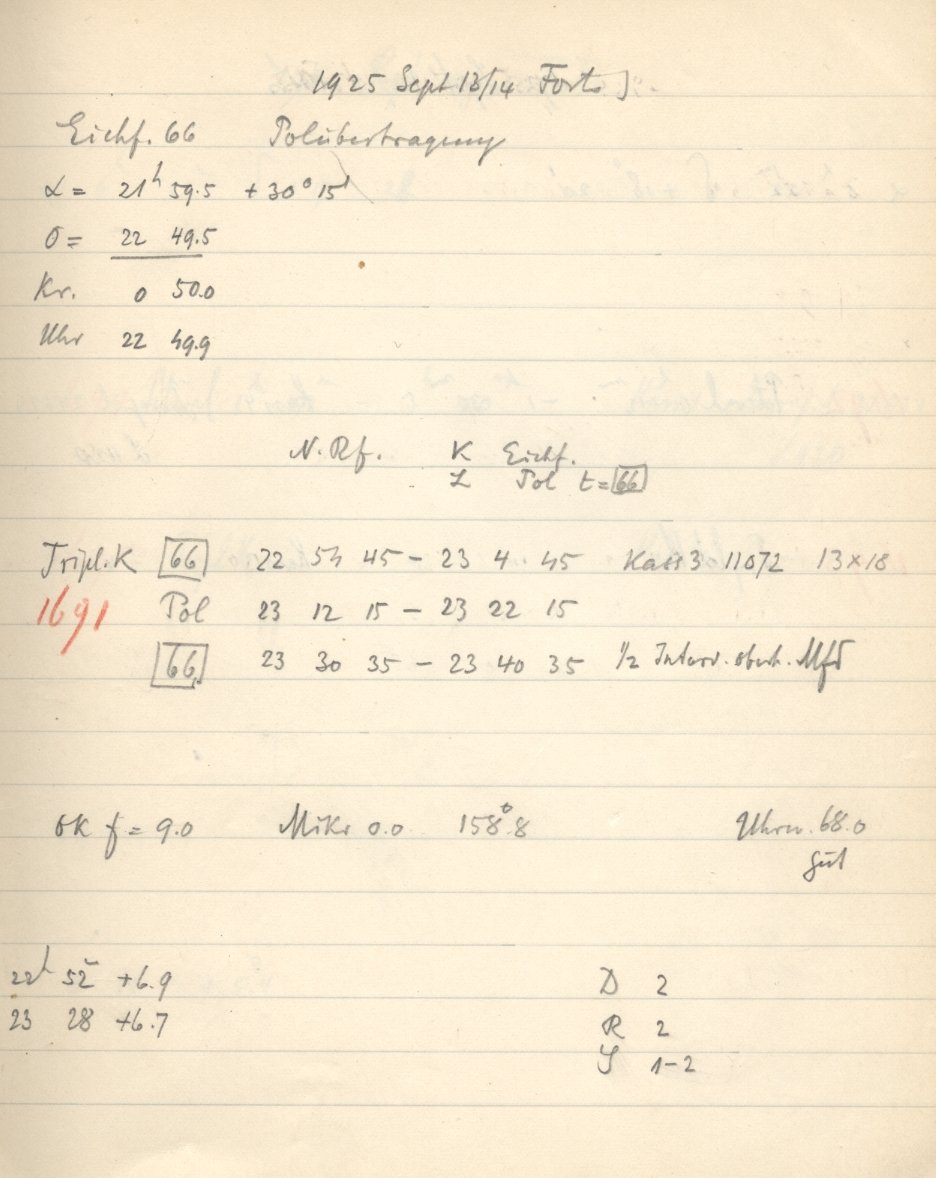 1925 Sept 13/14 Forts]
Eichf. 66 Polübertragung
α = 21h 59.5 + 30° 15'
O = 22 49.5
Kr. 0 50.0
Uhr 22 49.9
N. Rf. K Eichf.
L Pol t = 66
Tripl. K 66 22 54 45 – 23 4 45 Kass 3 11072 13×18
1691 Pol 23 12 15 – 23 22 15
66 23 30 35 – 23 40 35 1/2 Interv.
OK f = 9.0 Mikr 0.0 158°.8 Uhrw. 68.0
gut
22h 52 +6.9 D 2
23 28 +6.7 R 2
S 1–2